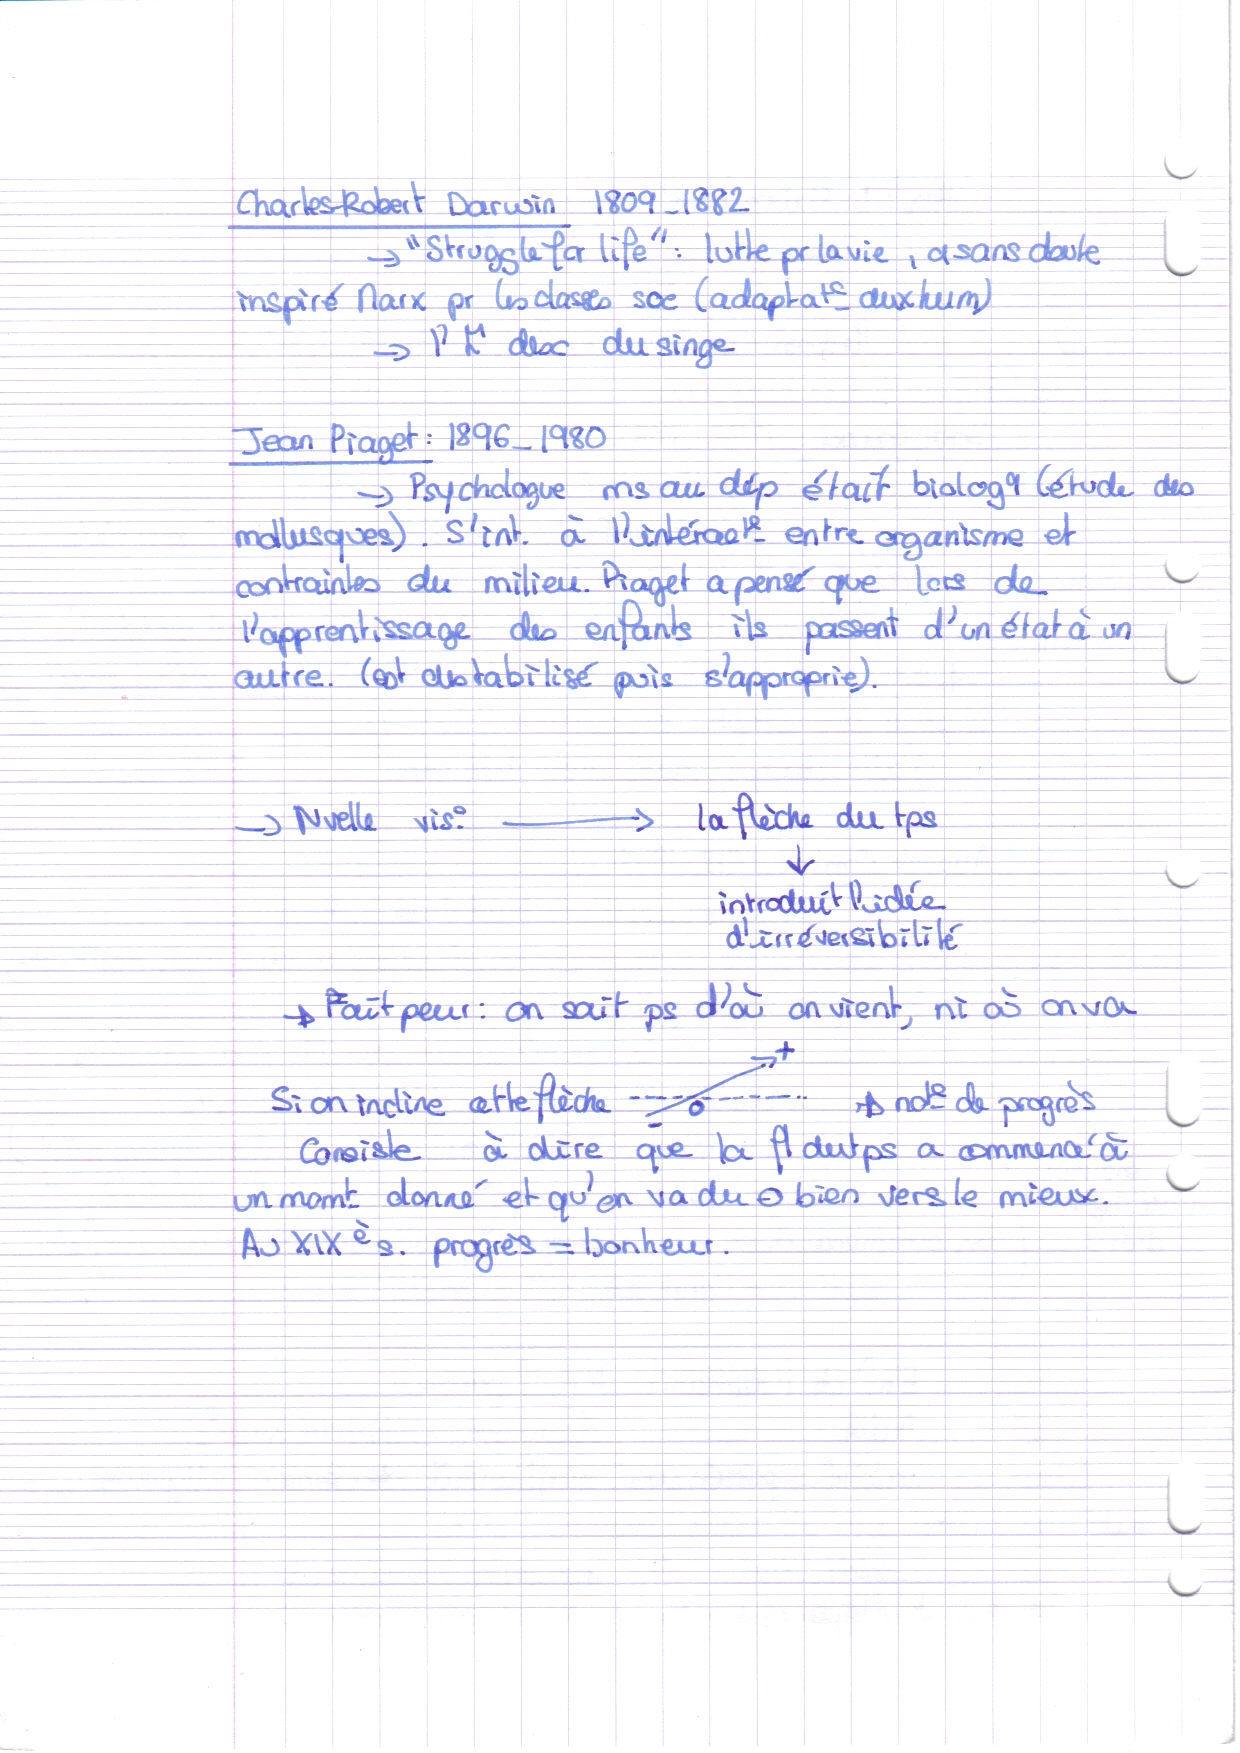 Charles-Robert Darwin 1809-1882
→ "Struggle for life" : lutte pr la vie, a sans doute
inspiré Marx pr les classes soc (adaptat° aux hum)
→ l' desc du singe
Jean Piaget : 1896-1980
→ Psychologue ms au dép était biologq (étude des
mollusques). S'int. à l'intéract° entre organisme et
contraintes du milieu. Piaget a pensé que lors de
l'apprentissage des enfants ils passent d'un état à un
autre. (est destabilisé puis s'approprie).
→ Nvelle vis° → la flèche du tps
↓
introduit l'idée
d'irréversibilité
→ Fait peur : on sait ps d'où on vient, ni où on va
+
Si on incline cette flèche o → not° de progrès
-
Consiste à dire que la fl du tps a commencé à
un momt donné et qu'on va du ⊖ bien vers le mieux.
Au XIXè s. progrès = bonheur.